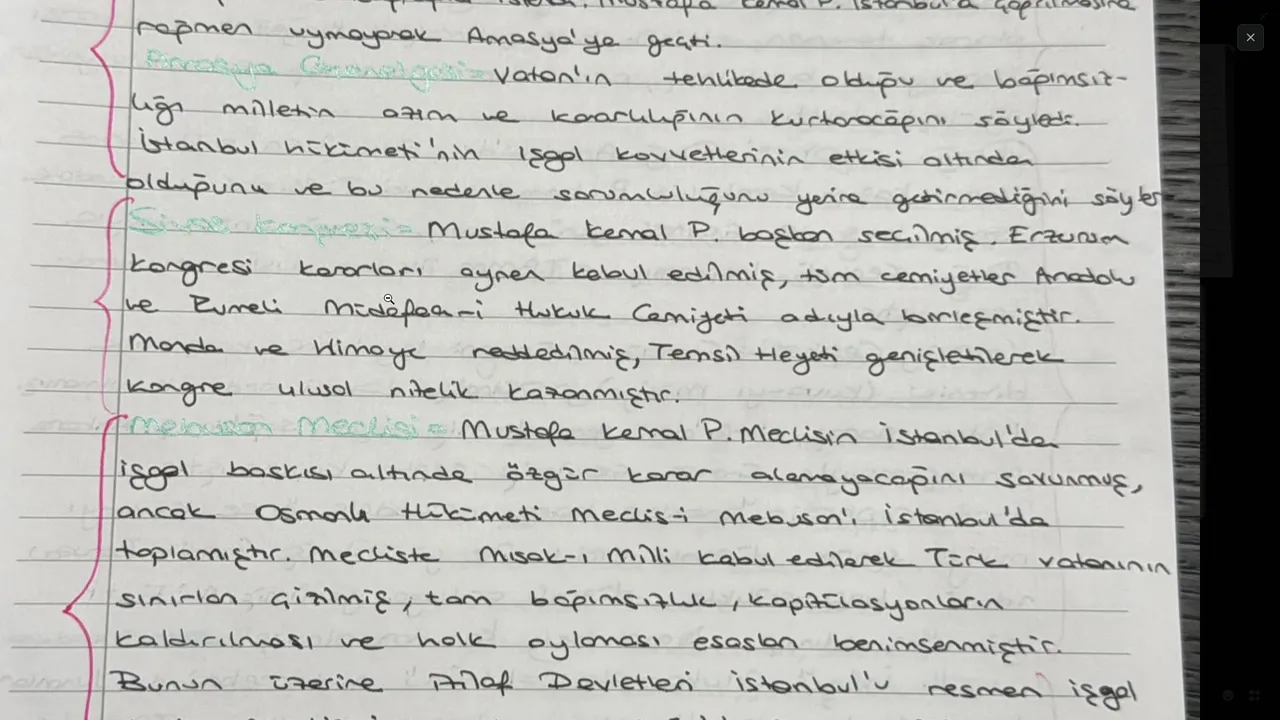 Mustafa Kemal P. İstanbul'a çağrılmasına
rağmen uymayarak Amasya'ya geçti.
Amasya Genelgesi = Vatan'ın tehlikede olduğu ve bağımsız-
lığı milletin azim ve kararlılığının kurtaracağını söyledi.
İstanbul hükümeti'nin işgal kuvvetlerinin etkisi altında
olduğunu ve bu nedenle sorumluluğunu yerine getirmediğini söyler
Sivas Kongresi = Mustafa Kemal P. başkan seçilmiş. Erzurum
kongresi kararları aynen kabul edilmiş, tüm cemiyetler Anadolu
ve Rumeli Müdafaa-i Hukuk Cemiyeti adıyla birleşmiştir.
Manda ve Himaye reddedilmiş, Temsil Heyeti genişletilerek
kongre ulusal nitelik kazanmıştır.
Mebusan Meclisi = Mustafa Kemal P. Meclisin İstanbul'da
işgal baskısı altında özgür karar alamayacağını savunmuş,
ancak Osmanlı Hükümeti Meclis-i Mebusan'ı İstanbul'da
toplamıştır. Mecliste Misak-ı Milli kabul edilerek Türk vatanının
sınırları çizilmiş, tam bağımsızlık, kapitülasyonların
kaldırılması ve halk oylaması esasları benimsenmiştir.
Bunun üzerine İtilaf Devletleri İstanbul'u resmen işgal